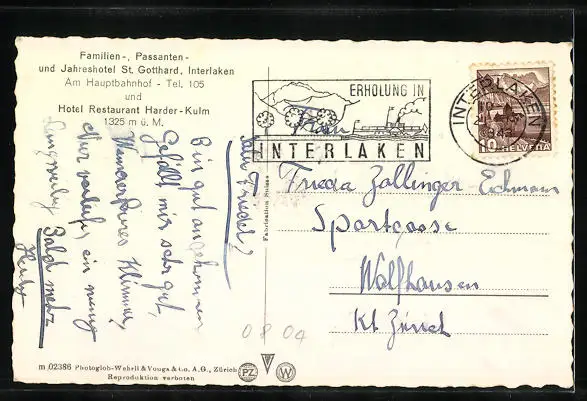 Familien-, Passanten-
und Jahreshotel St. Gotthard, Interlaken
Am Hauptbahnhof - Tel. 105
und
Hotel Restaurant Harder-Kulm
1325 m ü. M.
ERHOLUNG IN
INTERLAKEN
INTERLAKEN
10 HELVETIA
Bin gut angekommen
Gefällt mir sehr gut,
Wunderschönes Klima,
aber vorläufig ein wenig
langweilig Bald mehr
Fabrication Suisse
Frau
Frieda Zollinger
Sportgasse
Wolfhausen
Kt Zürich
08 04
m 02386 Photoglob-Wehrli & Vouga & Co. A.G., Zürich
Reproduktion verboten
PZ
W